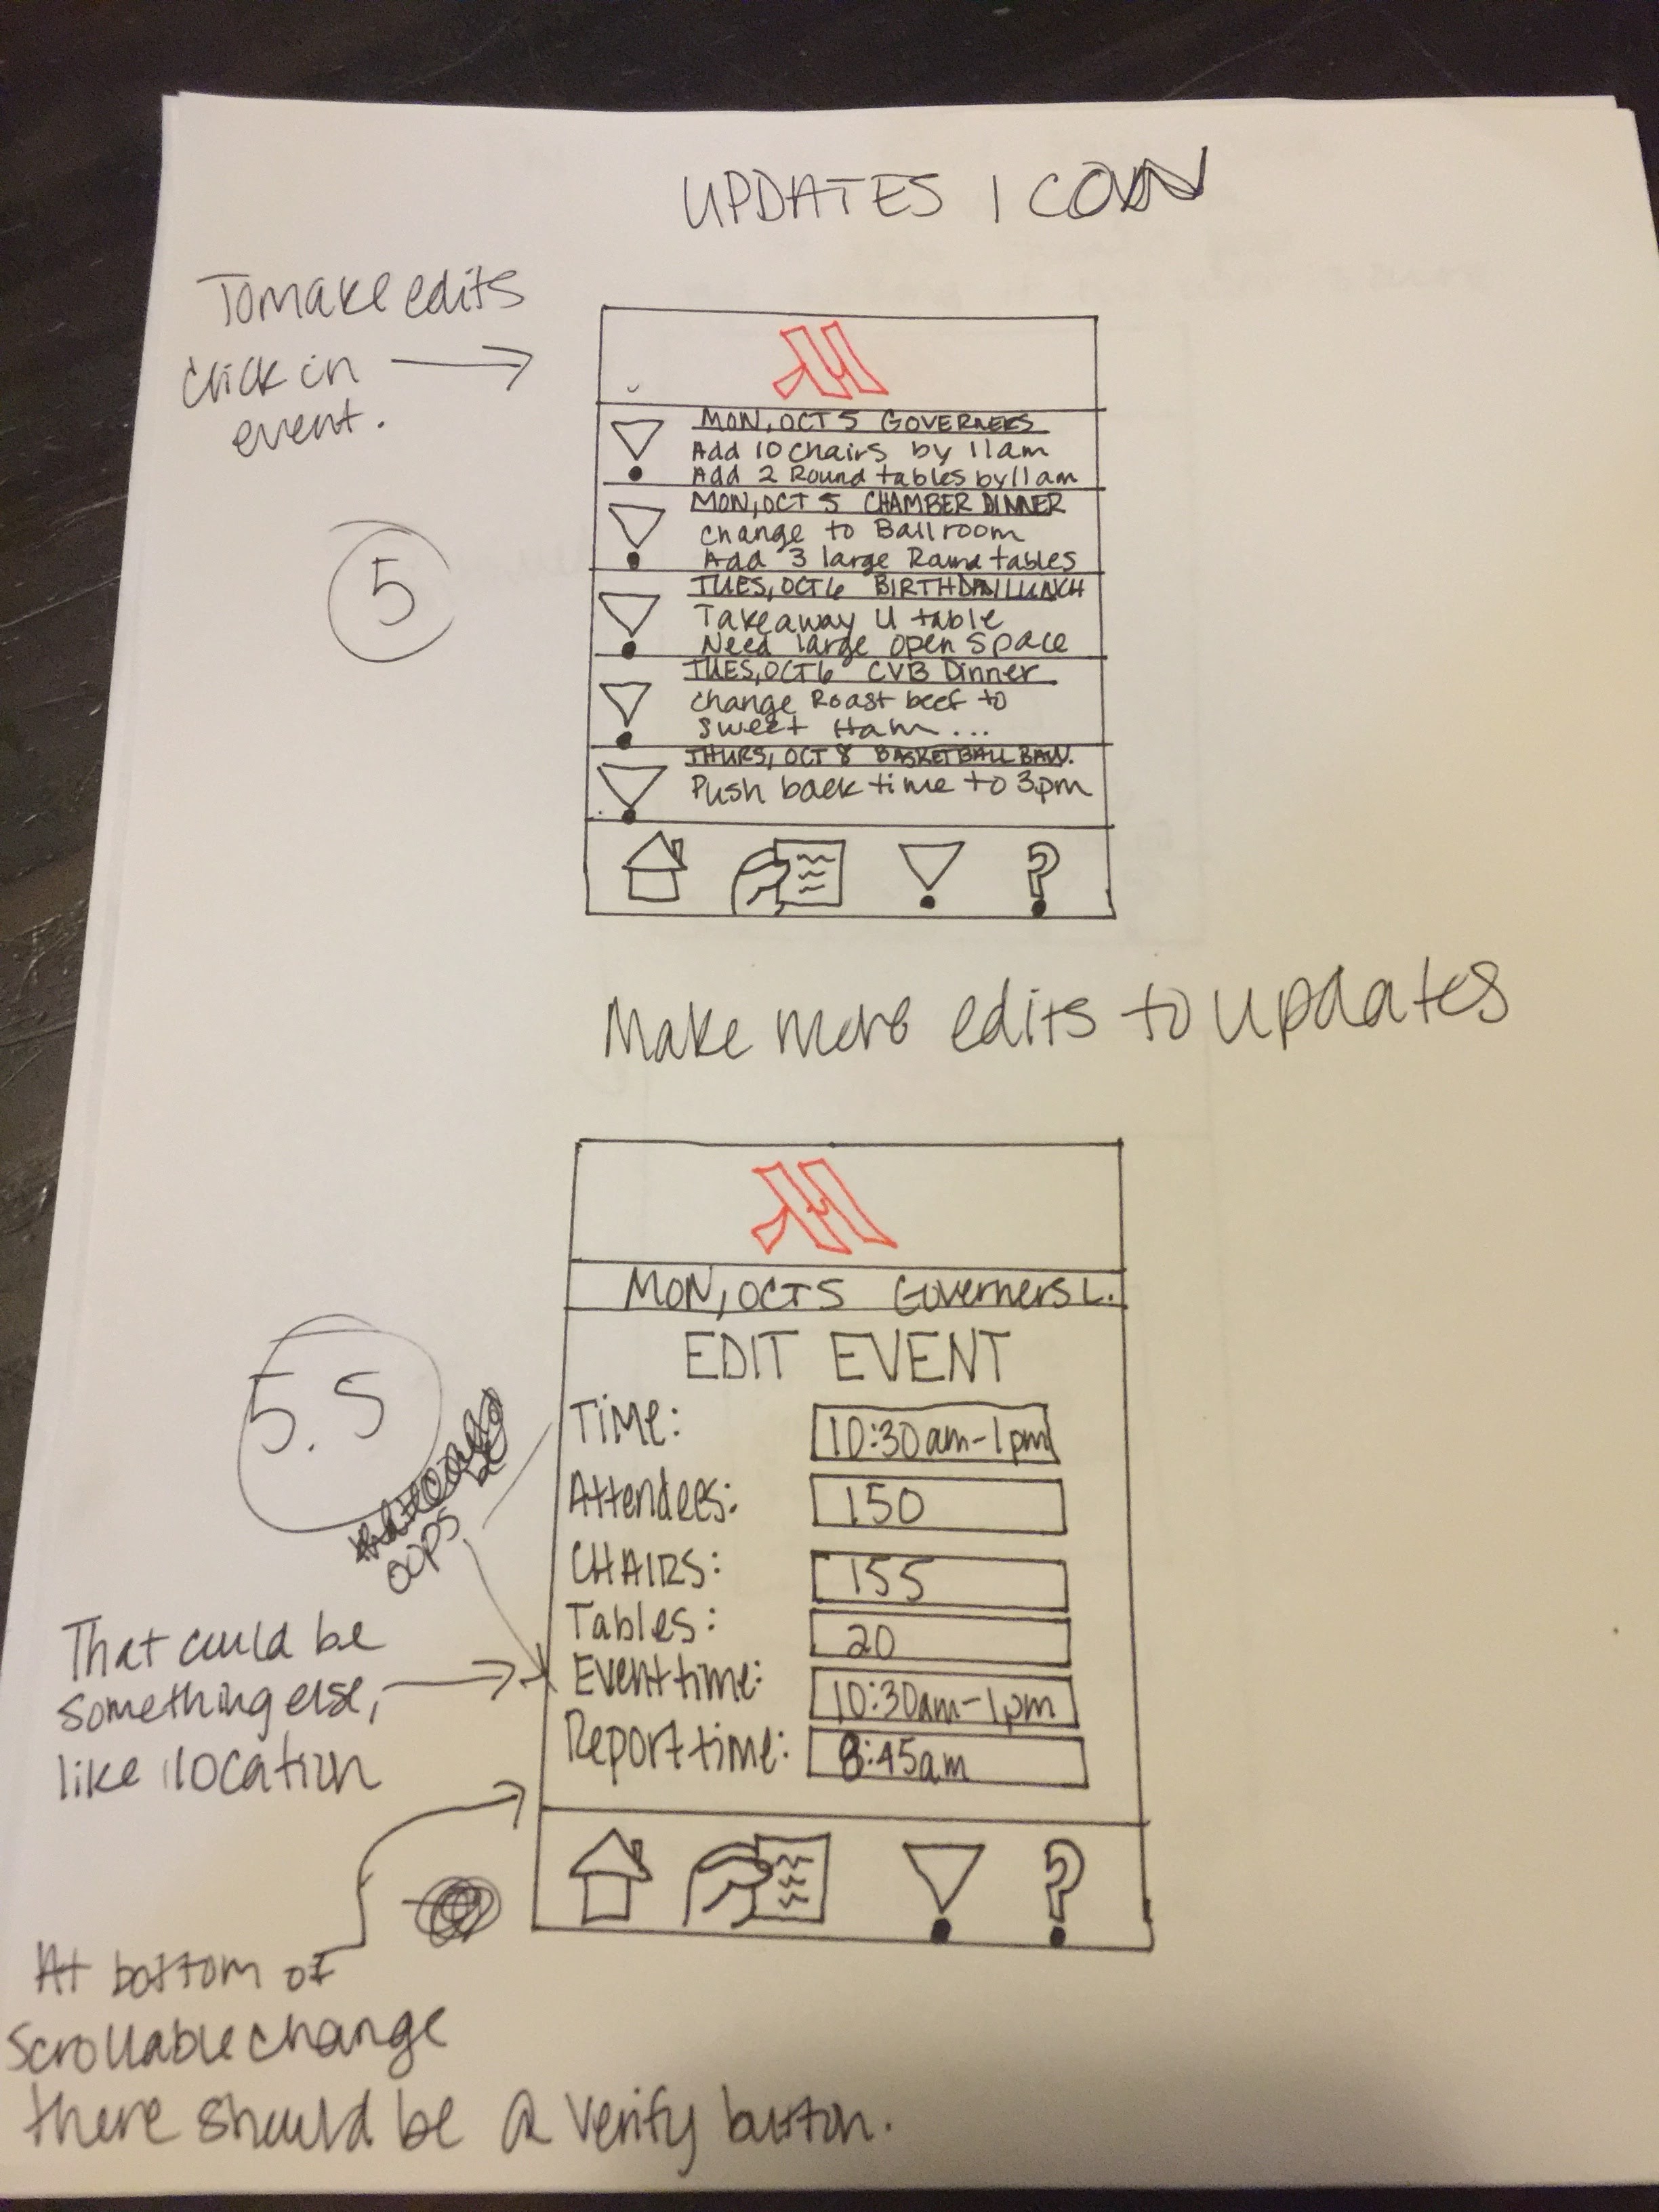 UPDATES ICON
To make edits
click in
event.
5
MON, OCT 5 GOVERNERS
Add 10 chairs by 11am
Add 2 Round tables by 11am
MON, OCT 5 CHAMBER DINNER
change to Ballroom
Add 3 large Round tables
TUES, OCT 6 BIRTHDAY LUNCH
Take away U table
Need large open space
TUES, OCT 6 CVB Dinner
change Roast beef to
sweet Ham...
THURS, OCT 8 BASKETBALL
Push back time to 3pm
?
Make more edits to updates
MON, OCT 5 Governers L.
EDIT EVENT
5.5
oops
Time: 10:30am-1pm
Attendees: 150
CHAIRS: 155
Tables: 20
Event time: 10:30am-1pm
Report time: 8:45am
That could be
something else,
like location
?
At bottom of
scrollable change
there should be a verify button.